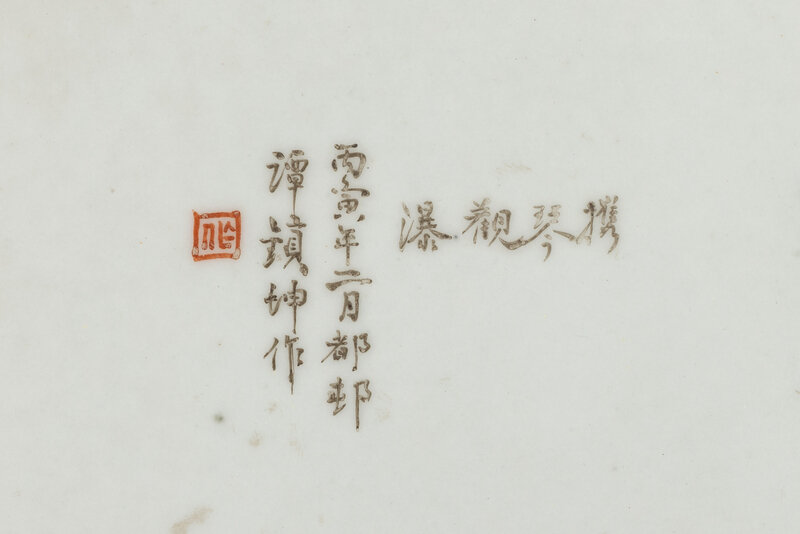 攜琴觀瀑
丙寅年二月都邨
譚鎮坤作
作